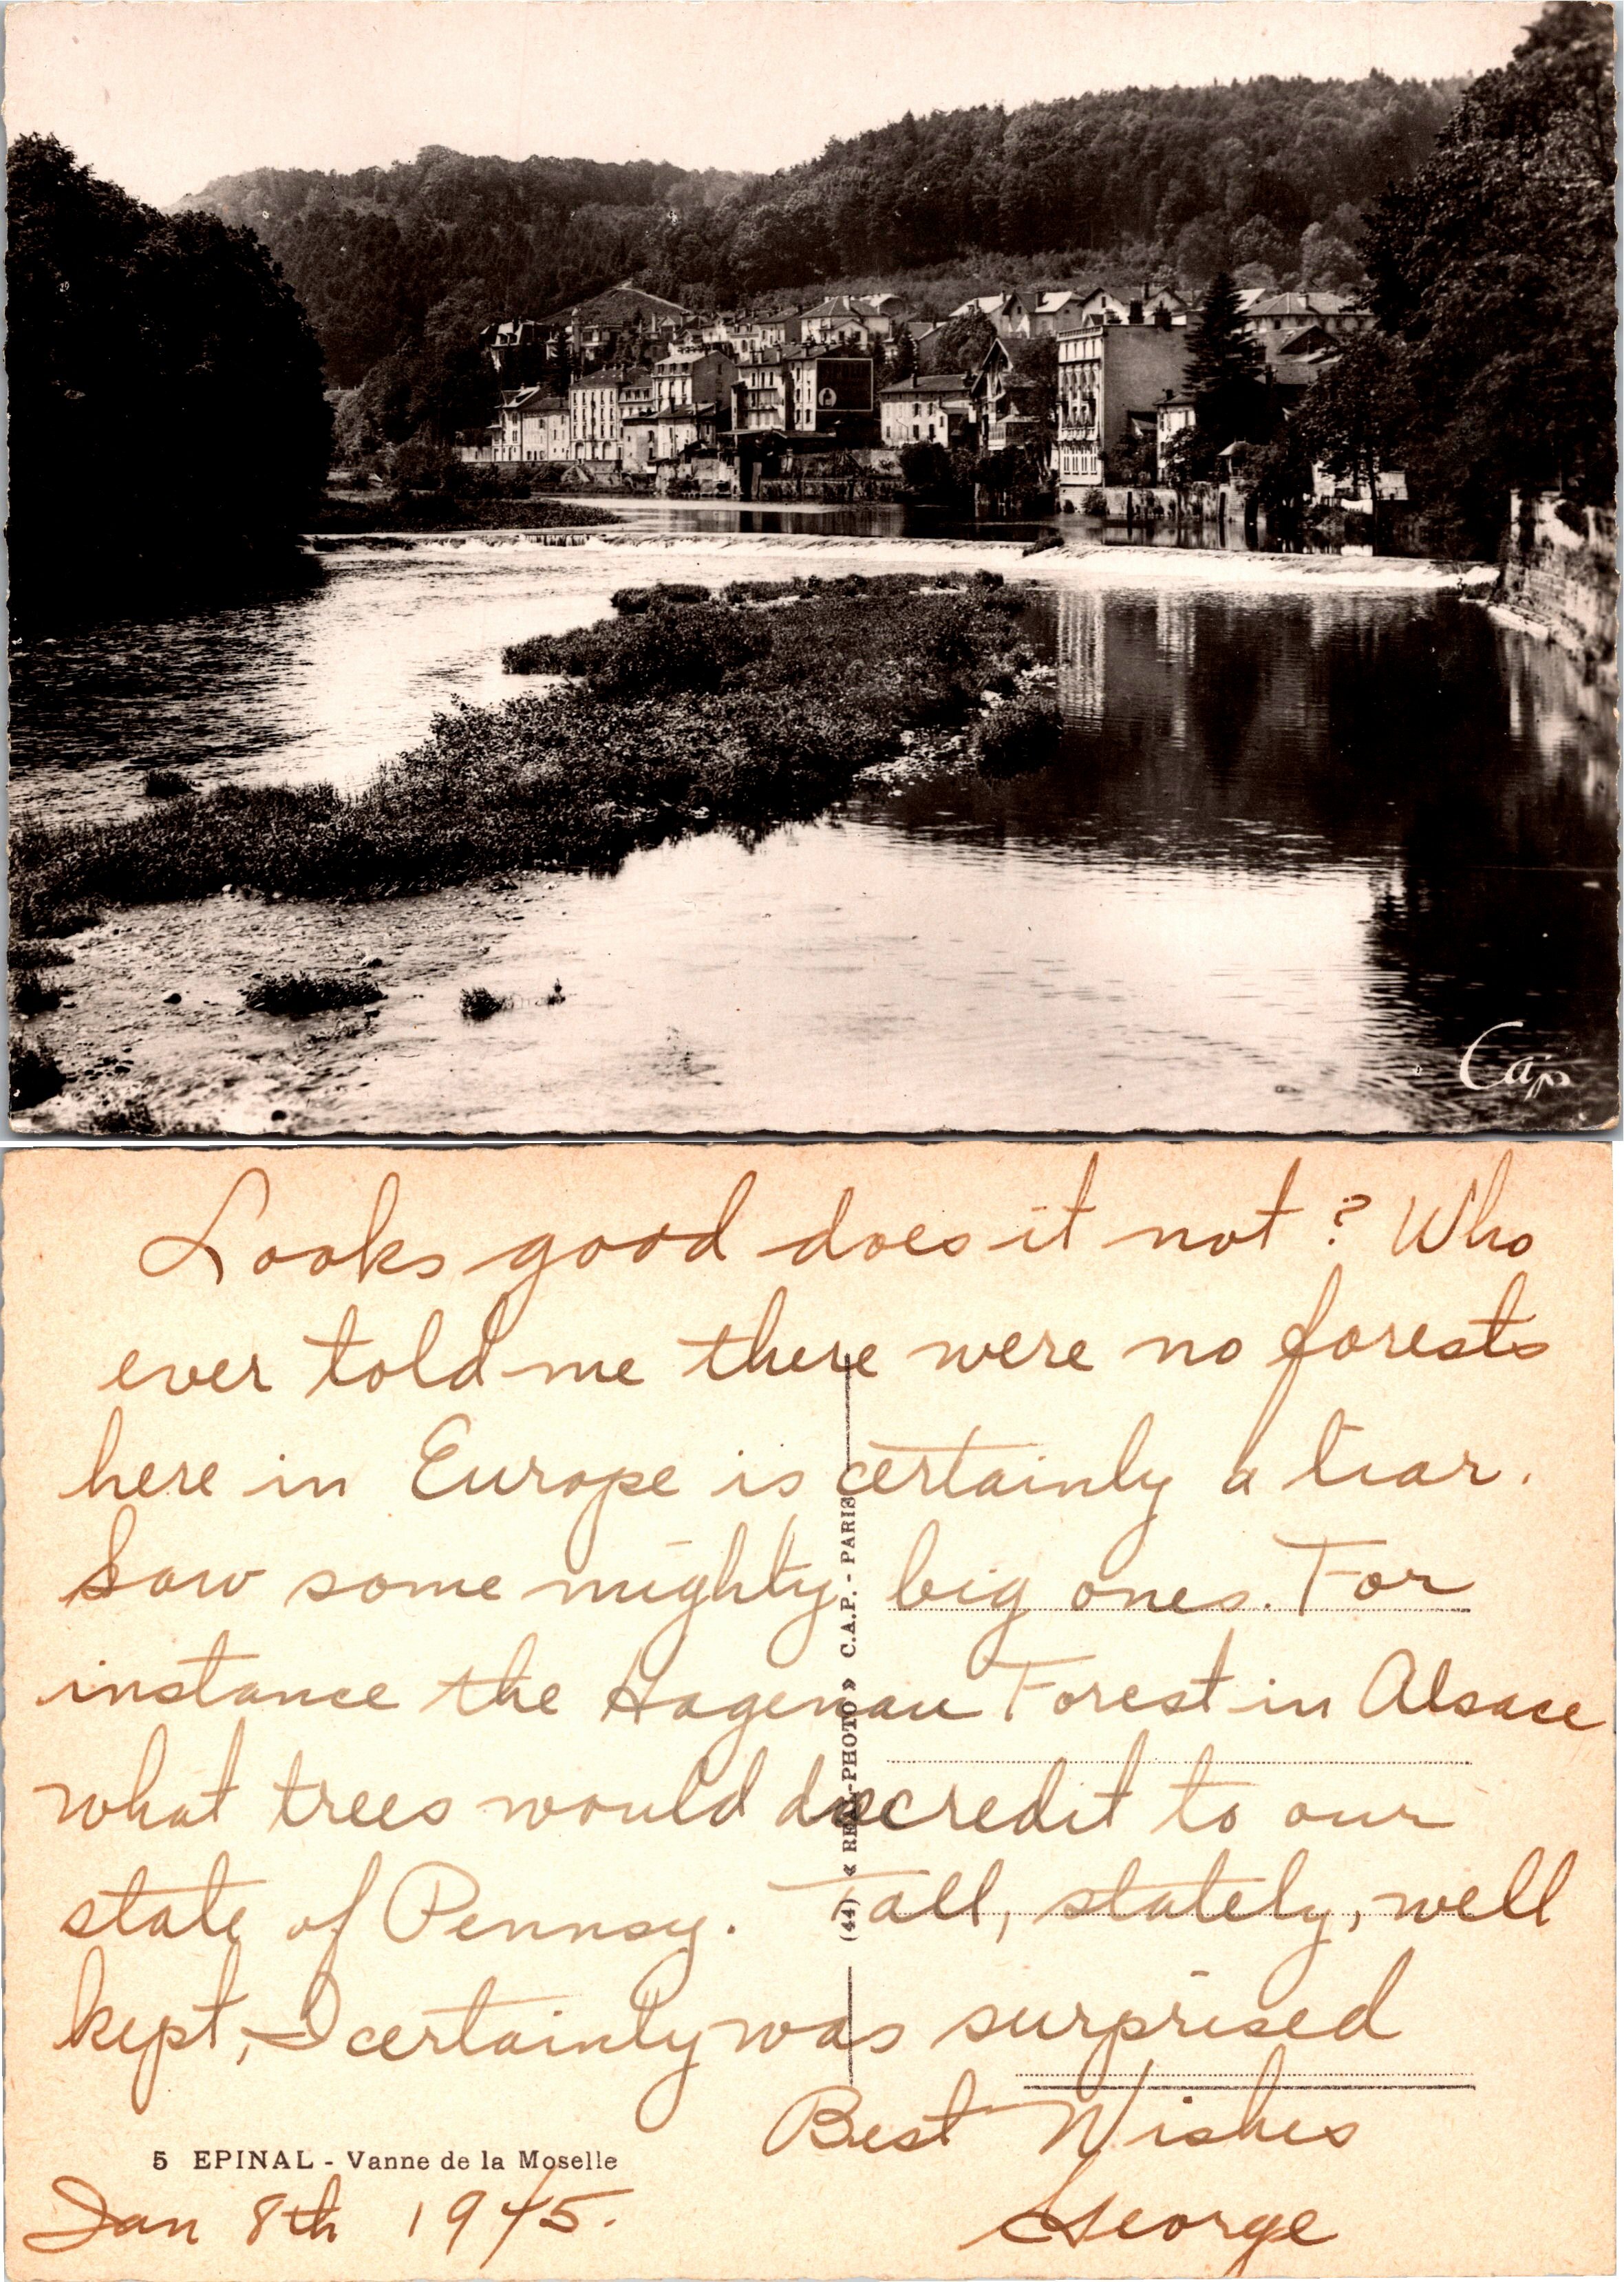 Cap
Looks good does it not? Who
ever told me there were no forests
here in Europe is certainly a liar.
Saw some mighty big ones. For
instance the Hagenau Forest in Alsace
what trees would do credit to our
state of Pennsy. Tall, stately, well
kept, I certainly was surprised
Best Wishes
George
5 EPINAL - Vanne de la Moselle
Jan 8th 1945.
(44) « REAL-PHOTO » C.A.P. - PARIS